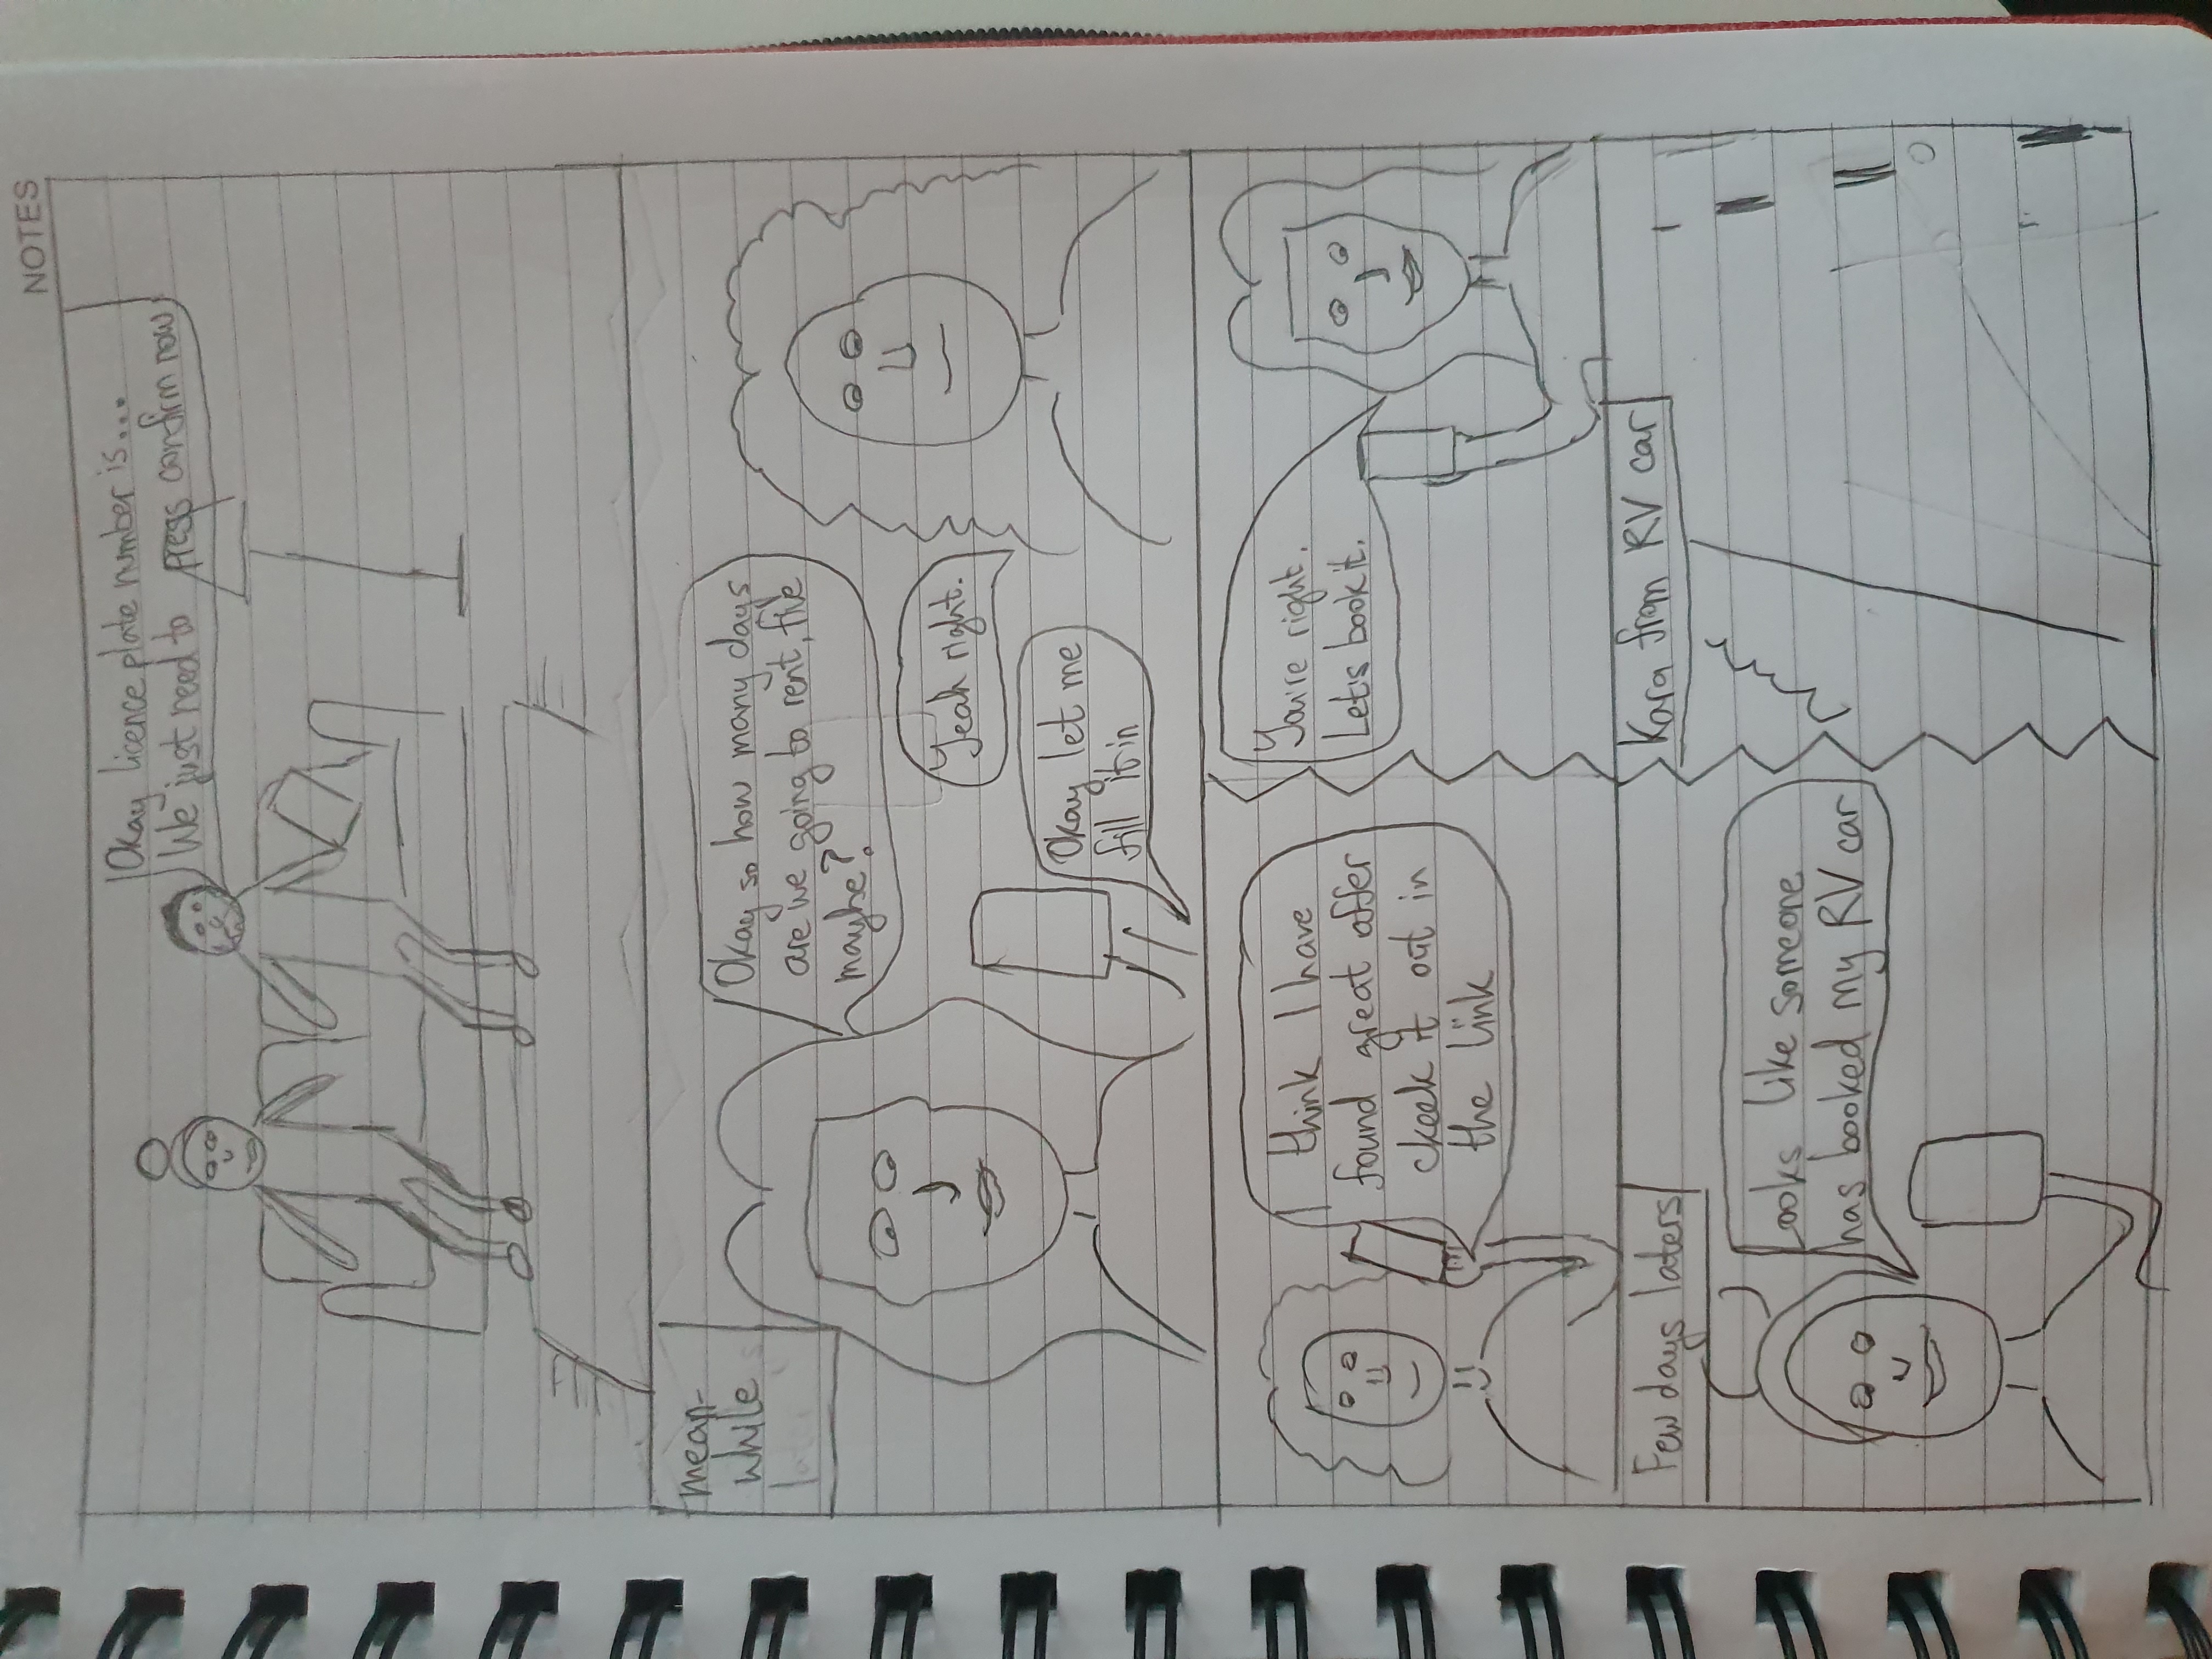 NOTES
Okay licence plate number is...
We just need to press confirm now
mean-
while
later
Okay so how many days
are we going to rent, five
maybe?
Yeah right.
Okay let me
fill it in
I think I have
found great offer
ckeck it out in
the link
You're right.
Let's book it.
Few days laters
Looks like someone
has booked my RV car
Kara from RV car